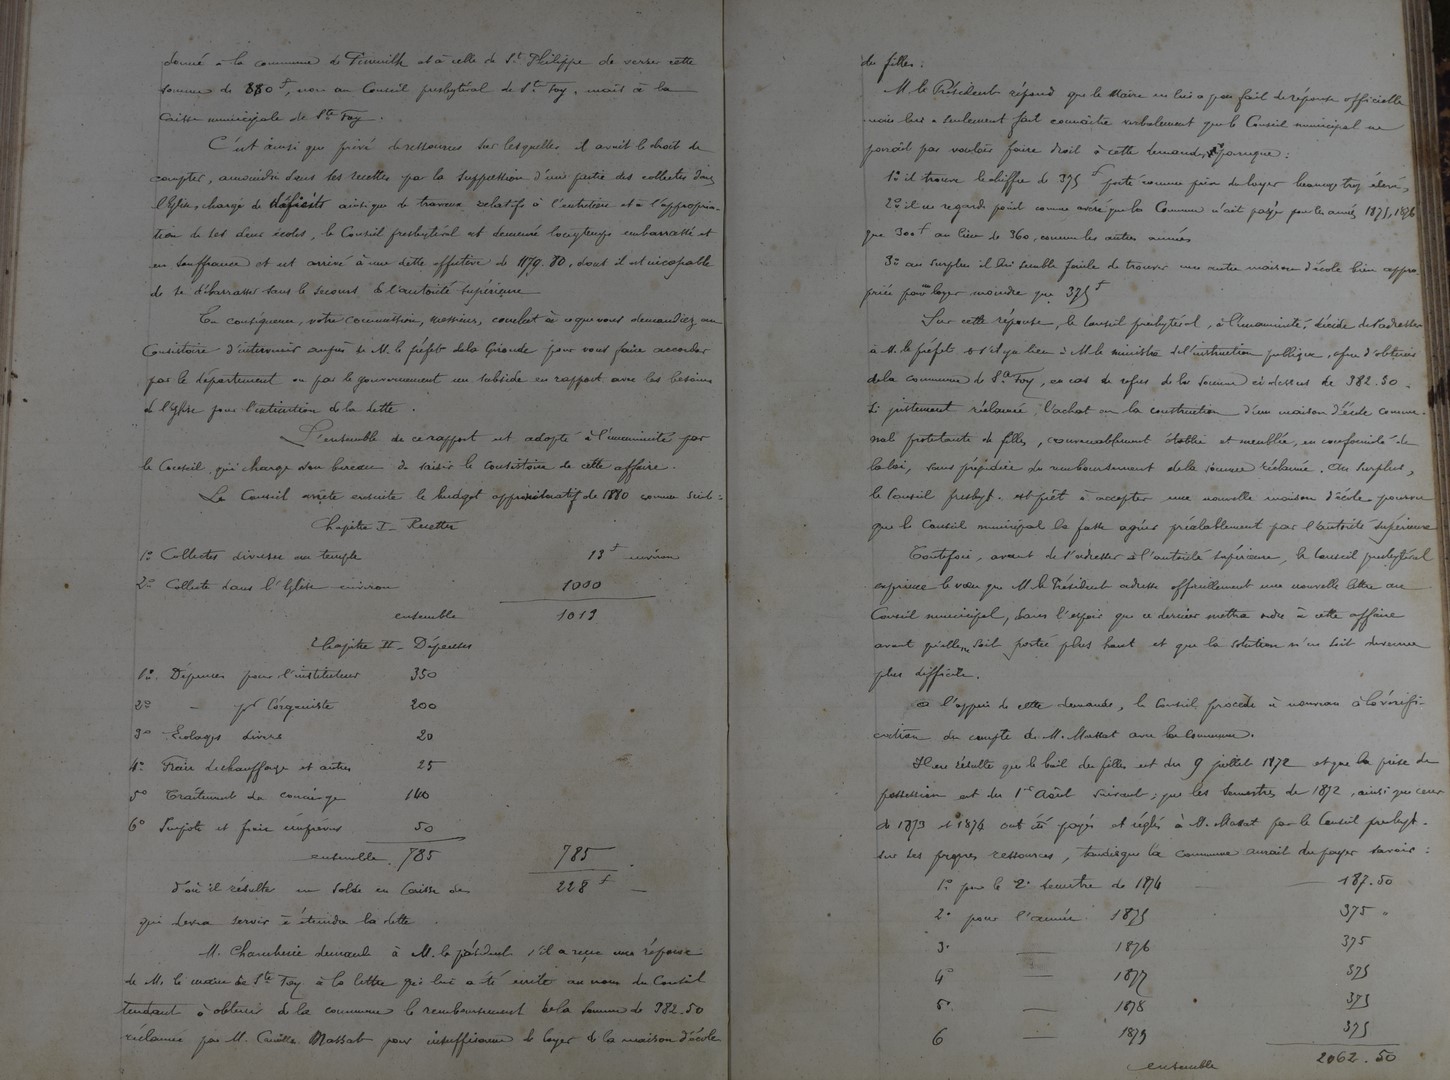 donné à la commune de Pineuilh et à celle de St. Philippe de verser cette
somme de 880 f, non au Conseil presbytéral de Ste Foy, mais à la
Caisse municipale de Ste Foy.
C'est ainsi que privé de ressources sur lesquelles il avait le droit de
compter, amoindri dans ses recettes par la suppression d'une partie des collectes dans
l'Eglise, chargé de déficits ainsi que de travaux relatifs à l'entretien et à l'appropria-
tion de ses deux écoles, le Conseil presbytéral est demeuré longtemps embarrassé et
en souffrance et est arrivé à une dette effective de 1179.80, dont il est incapable
de se débarrasser sans le secours de l'autorité supérieure
En conséquence, votre commission, messieurs, conclut à ce que vous demandiez au
Consistoire d'intervenir auprès de M. le préfet de la Gironde pour vous faire accorder
par le département ou par le gouvernement un subside en rapport avec les besoins
de l'Eglise pour l'extinction de la dette.
L'ensemble de ce rapport est adopté à l'unanimité par
le Conseil, qui charge son bureau de saisir le consistoire de cette affaire.
Le Conseil arrête ensuite le budget approximatif de 1880 comme suit:
Chapitre I - Recettes
1o Collectes diverses au temple 13 f environ
2o Collecte dans l'Eglise environ 1000
ensemble 1013
Chapitre II - Dépenses
1o. Dépenses pour l'instituteur 350
2o - pr l'organiste 200
3o Ecolages divers 20
4o Frais de chauffage et autres 25
5o Traitement du concierge 140
6o Impôts et frais imprévus 50
ensemble. 785 785
d'où il résulte un solde en Caisse de 228 f
qui devra servir à éteindre la dette
M. demande à M. le président s'il a reçu une réponse
de M. le maire de Ste Foy à la lettre qui lui a été écrite au nom du Conseil
tendant à obtenir de la commune le remboursement de la somme de 382.50
réclamée par M. Massat pour insuffisance de loyer de la maison d'école
des filles:
M. le Président répond que le Maire ne lui a pas fait de réponse officielle
mais lui a seulement fait connaître verbalement que le Conseil municipal ne
paraît pas vouloir faire droit à cette demande, parceque:
1o il trouve le chiffre de 375 f porté comme prix de loyer beaucoup trop élevé,
2o il ne regarde point comme avéré que la Commune n'ait payé pour les années 1875, 1876
que 300 f au lieu de 360, comme les autres années
3o au surplus il lui semble facile de trouver une autre maison d'école bien appro-
priée pour un loyer moindre que 375 f
Sur cette réponse, le Conseil presbytéral, à l'unanimité, décide de s'adresser
à M. le préfet et s'il y a lieu à M. le ministre de l'instruction publique, afin d'obtenir
de la commune de Ste Foy, en cas de refus de la somme ci dessus de 382.50
si justement réclamée, l'achat ou la construction d'une maison d'école commu-
nale protestante de filles, convenablement établie et meublée, en conformité de
la loi, sans préjudice du remboursement de la somme réclamée. Au surplus,
le Conseil presbyt. est prêt à accepter une nouvelle maison d'école pourvu
que le Conseil municipal la fasse agréer préalablement par l'autorité supérieure
Toutefois, avant de s'adresser à l'autorité supérieure, le Conseil presbytéral
exprime le voeu que M. le Président adresse officiellement une nouvelle lettre au
Conseil municipal, dans l'espoir que ce dernier mettra ordre à cette affaire
avant qu'elle ne soit portée plus haut et que la solution n'en soit devenue
plus difficile.
A l'appui de cette demande, le Conseil procède à nouveau à la vérifi-
cation du compte de M. Massat avec la Commune.
Il en résulte que le bail des filles est du 9 juillet 1872 et que la prise de
possession est du 1er Août suivant; que les semestres de 1872, ainsi que ceux
de 1873 et 1874 ont été payés et réglés à M. Massat par le Conseil presbyt.
sur ses propres ressources, tandis que la commune aurait dû payer savoir:
1o pour le 2e semestre de 1874 187.50
2o pour l'année 1875 375 "
3o — 1876 375
4o — 1877 375
5o — 1878 375
6 — 1879 375
ensemble 2062.50